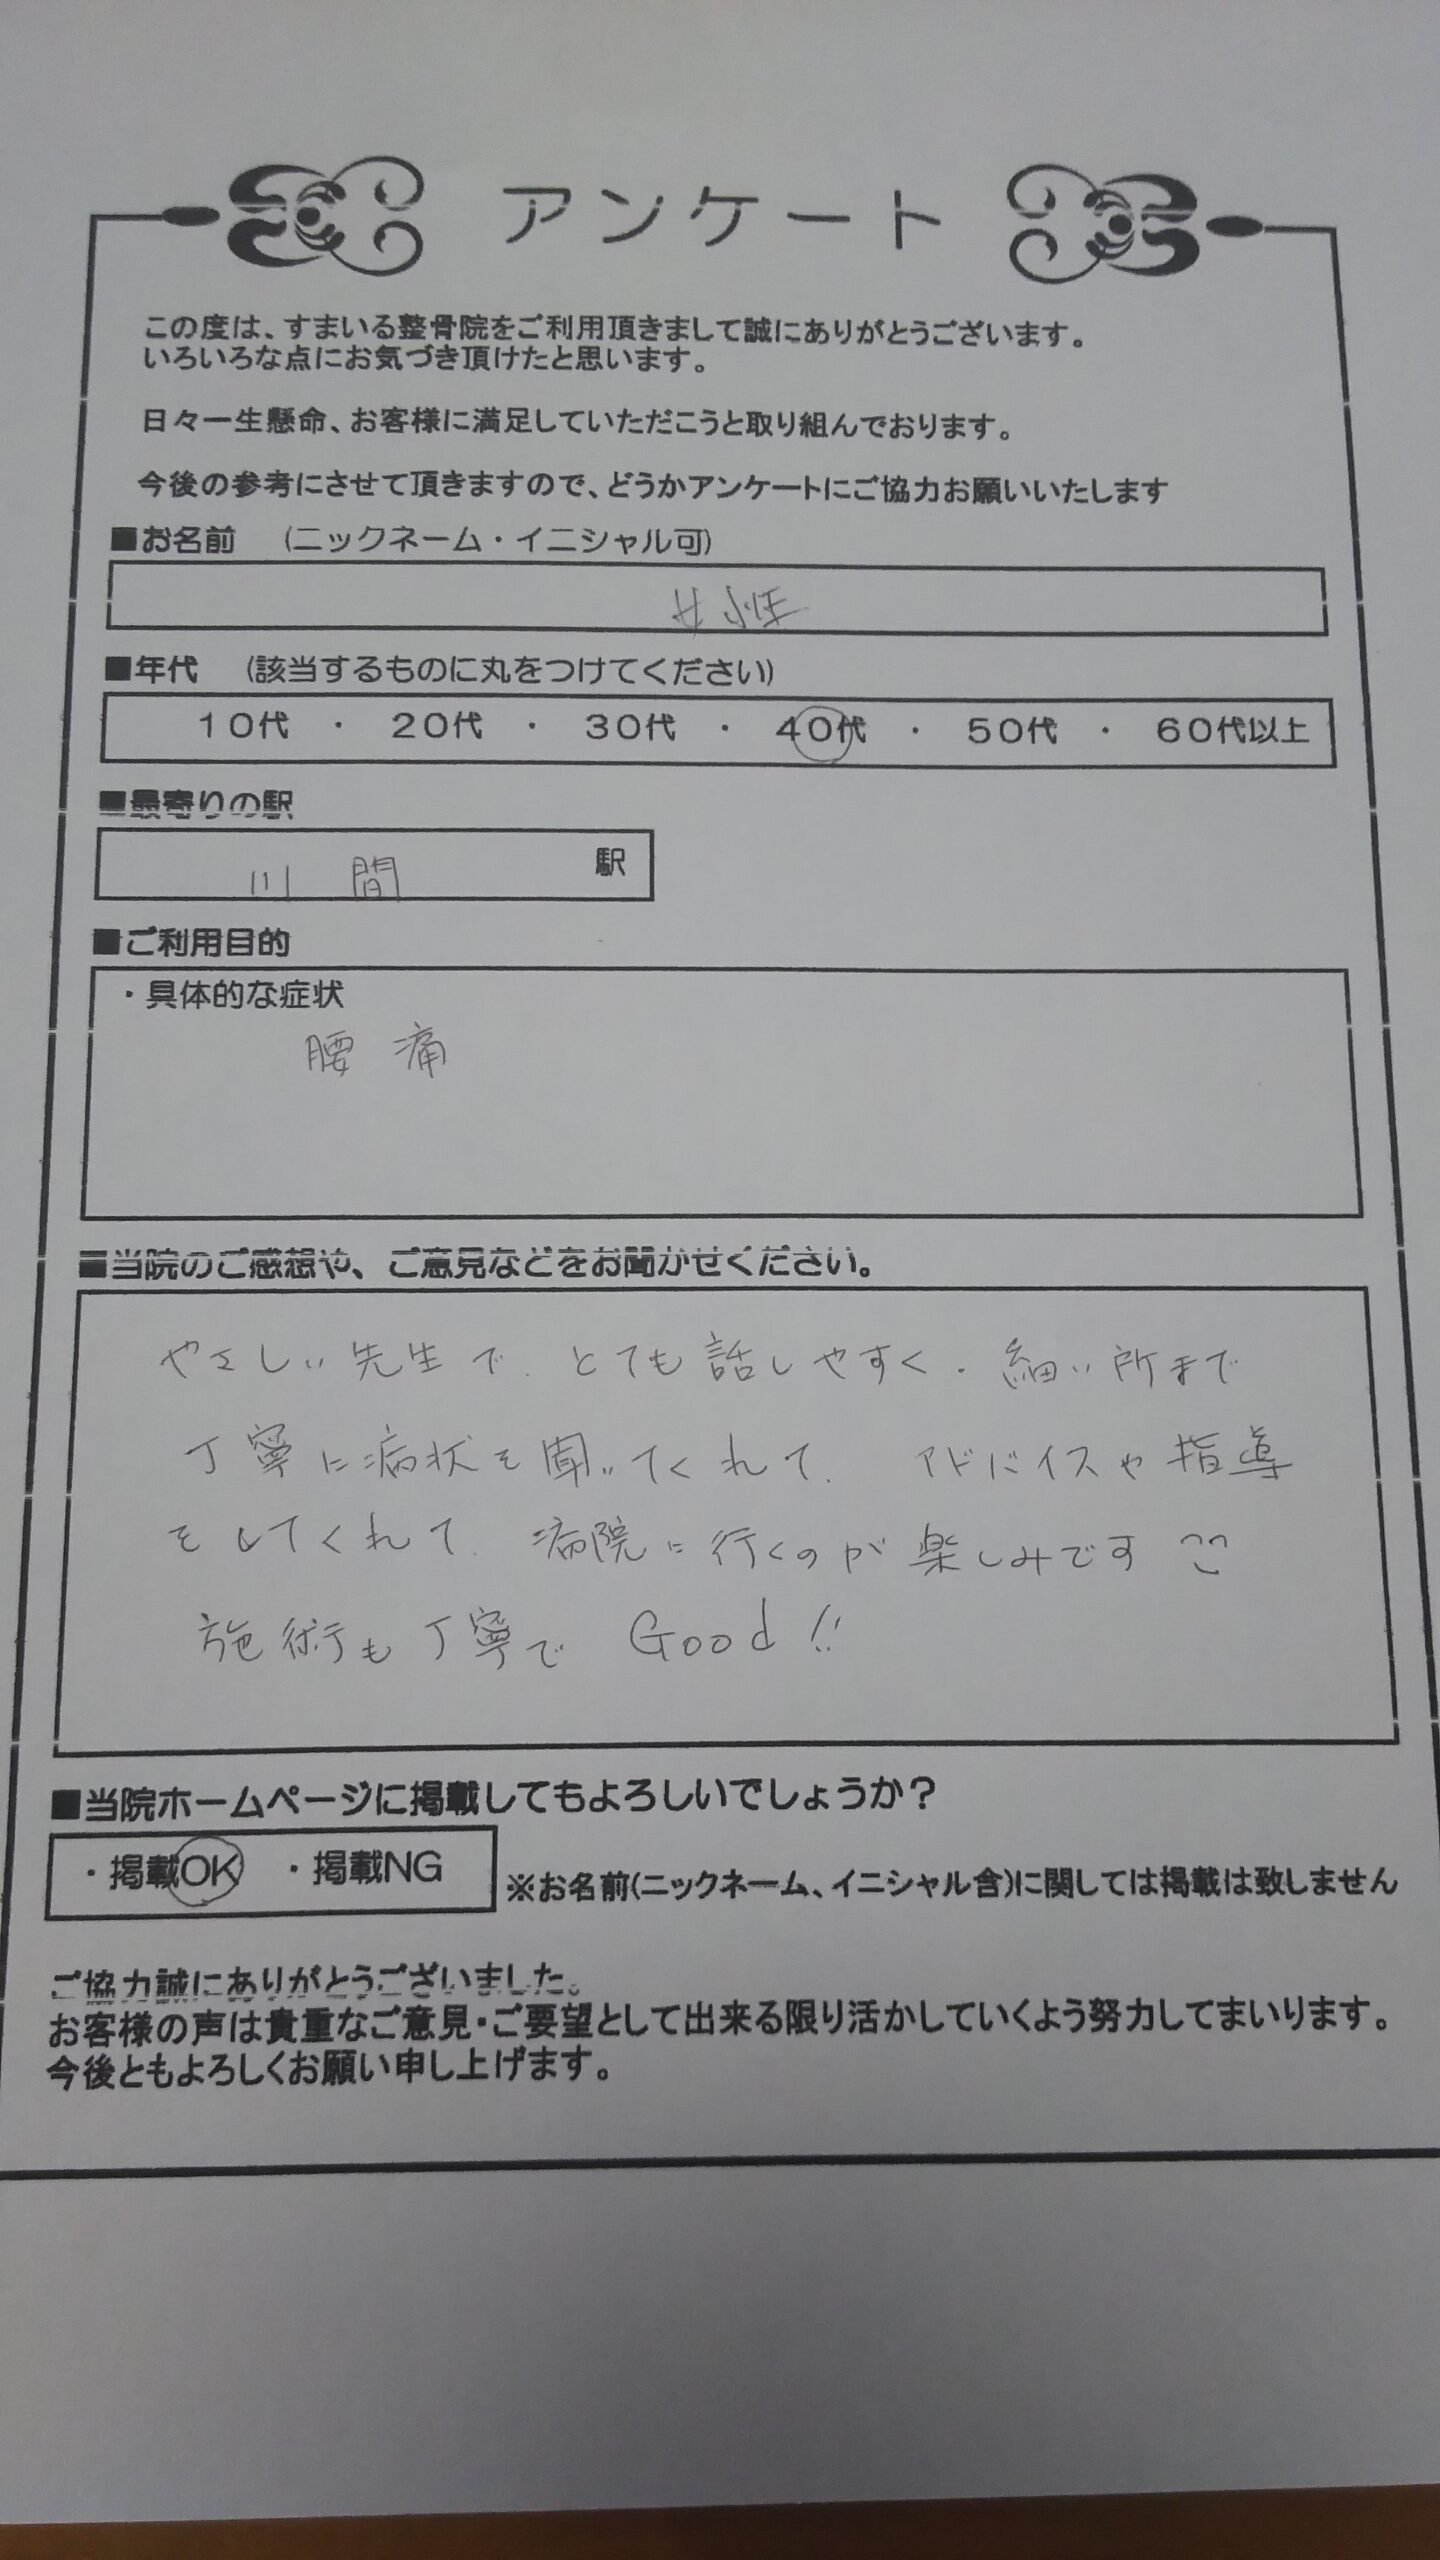 アンケート
この度は、すまいる整骨院をご利用頂きまして誠にありがとうございます。
いろいろな点にお気づき頂けたと思います。
日々一生懸命、お客様に満足していただこうと取り組んでおります。
今後の参考にさせて頂きますので、どうかアンケートにご協力お願いいたします
■お名前 (ニックネーム・イニシャル可)
女性
■年代 (該当するものに丸をつけてください)
10代 ・ 20代 ・ 30代 ・ 40代 ・ 50代 ・ 60代以上
■最寄りの駅
川間 駅
■ご利用目的
・具体的な症状
腰痛
■当院のご感想や、ご意見などをお聞かせください。
やさしい先生で、とても話しやすく、細い所まで
丁寧に病状を聞いてくれて、アドバイスや指導
をしてくれて、病院に行くのが楽しみです
施術も丁寧で Good!!
■当院ホームページに掲載してもよろしいでしょうか?
・掲載OK ・掲載NG
※お名前(ニックネーム、イニシャル含)に関しては掲載は致しません
ご協力誠にありがとうございました。
お客様の声は貴重なご意見・ご要望として出来る限り活かしていくよう努力してまいります。
今後ともよろしくお願い申し上げます。